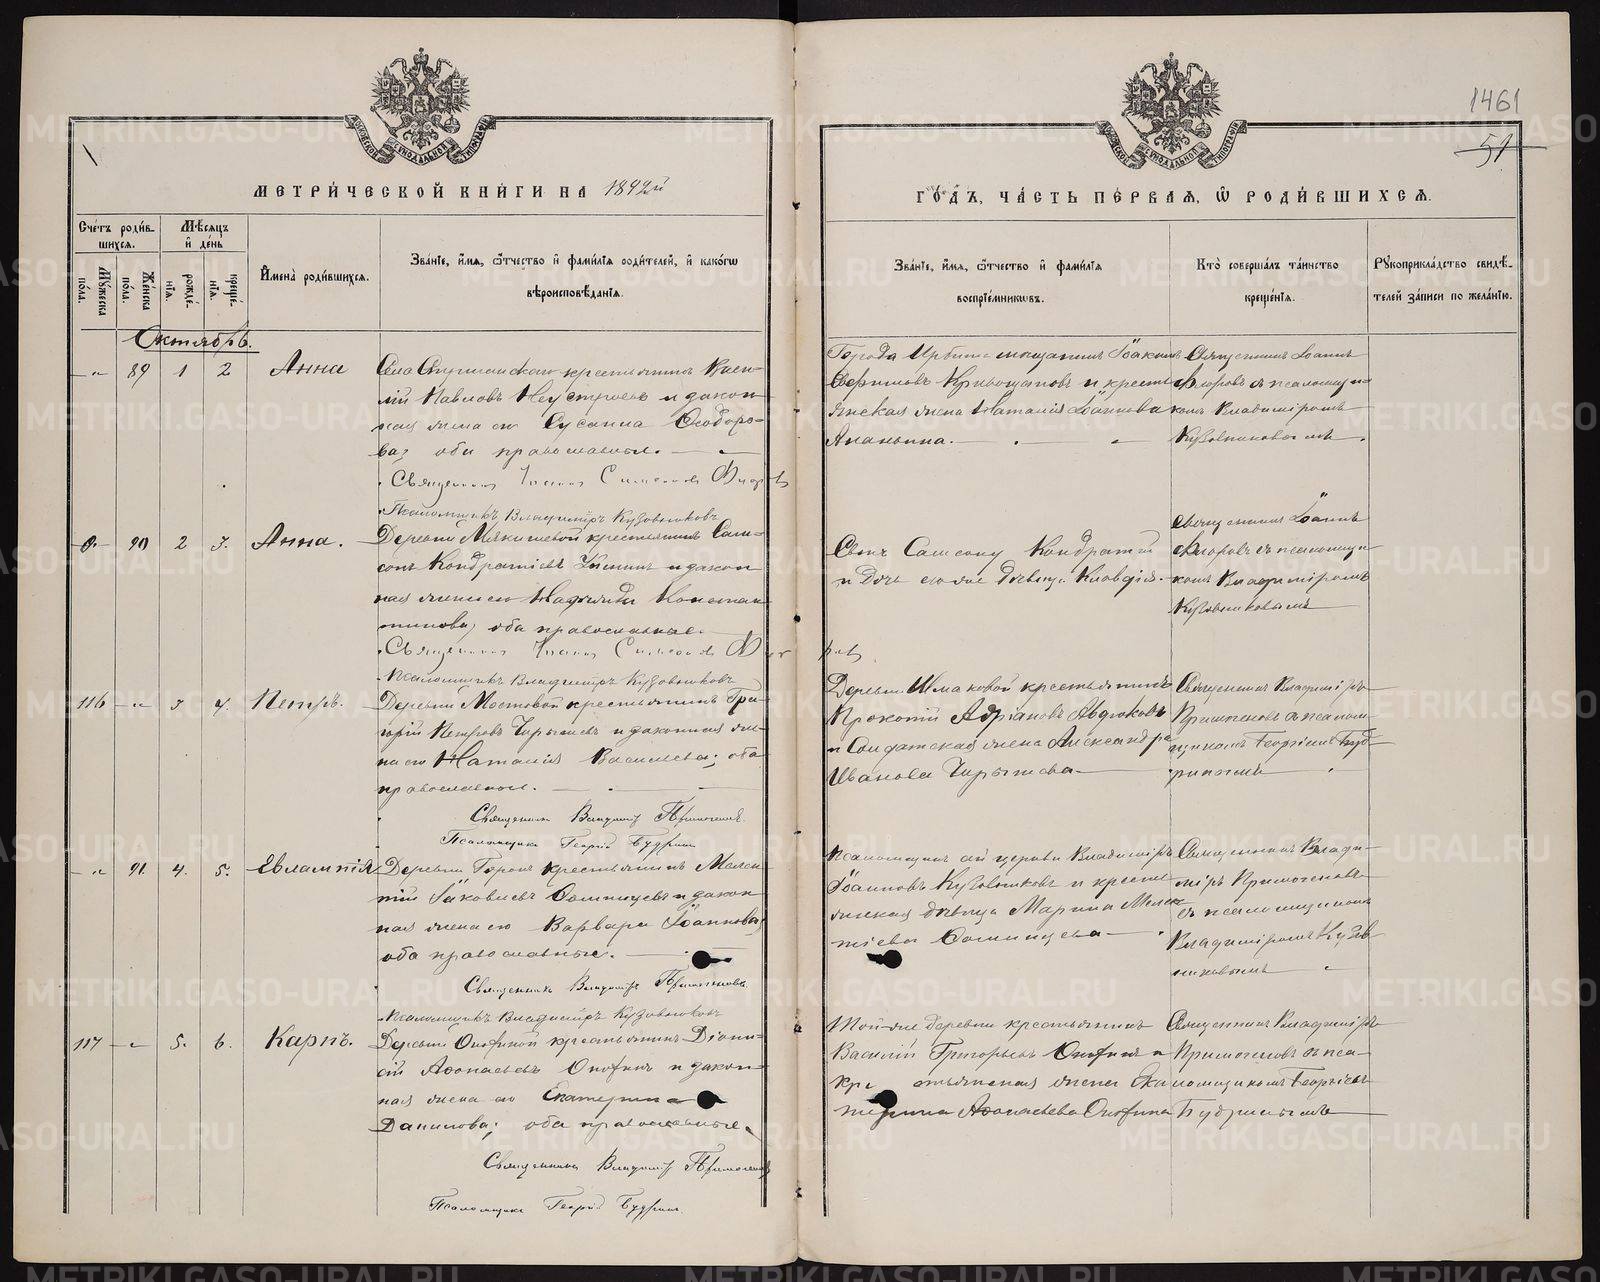 1461
51
МЕТРИ́ЧЕСКОЙ КНИ́ГИ НА 1892й
ГО́ДЪ, ЧА́СТЬ ПЕ́РВАЯ, Ѡ РОДИ́ВШИХСЯ.
Счетъ роди́вшихся.
Мужеска по́ла.
Же́нска по́ла.
Мѣсяцъ и де́нь
рожде́нія.
креще́нія.
Имена̀ роди́вшихся.
Зва́ніе, и́мя, о́тчество и фами́лія роди́телей, и како́гѡ
вѣроисповѣ́данія.
Зва́ніе, и́мя, о́тчество и фами́лія
воспріе́мниковъ.
Кто̀ соверша́лъ та́инство
креще́нія.
Рукоприкла́дство свидѣ́-
телей за́писи по жела́нію.
Октябрь.
89 1 2 Анна
Села Стриганскаго крестьянинъ Васи-
лій Павловъ Неустроевъ и закон-
ная жена его Сусанна Ѳеодоро-
ва, оба православные.
Священникъ Іоаннъ Флоровъ
Псаломщикъ Владиміръ Кузовниковъ
Города Ирбита мещанинъ Іоакимъ
и кресть-
янская жена Наталія Іоаннова
Ананьина.
Священникъ Іоаннъ
Флоровъ съ псаломщи-
комъ Владиміромъ
Кузовниковымъ.
90 2 3. Анна.
Деревни Мякишевой крестьянинъ Сам-
сонъ Кондратіевъ и закон-
ная жена его Надежда Констан-
тинова, оба православные.
Священникъ Іоаннъ Флоровъ
Псаломщикъ Владиміръ Кузовниковъ
Сынъ Самсону Кондратій
и дочь его же девица Клавдія.
Священникъ Іоаннъ
Флоровъ съ псаломщи-
комъ Владиміромъ
Кузовниковымъ
116 3 4. Петръ.
Деревни Мостовой крестьянинъ Гри-
горій Петровъ Чирышевъ и законная же-
на его Наталія Васильева; оба
православные.
Священникъ Владиміръ
Псаломщикъ Георгій Будринъ
Деревни Шмаковой крестьянинъ
Прокопій Адріановъ Авдюковъ
и Солдатская жена Александра
Иванова Чирышева
Священникъ Владиміръ
съ псалом-
щикомъ Георгіемъ Буд-
ринымъ
91. 4. 5. Евлампія
Деревни крестьянинъ Мелен-
тій Іаковлевъ Соминцевъ и закон-
ная жена его Варвара Іоаннова;
оба православные.
Священникъ Владиміръ
Псаломщикъ Владиміръ Кузовниковъ
Псаломщикъ церкви Владиміръ
Іоанновъ Кузовниковъ и кресть-
янская девица Марина Мелен-
тіева Соминцева
Священникъ Влади-
міръ
съ псаломщикомъ
Владиміромъ Кузов-
никовымъ
117 5. 6. Карпъ.
Деревни крестьянинъ Діони-
сій Аѳонасьевъ и закон-
ная жена его Екатерина
Данилова; оба православные.
Священникъ Владиміръ
Псаломщикъ Георгій Будринъ
Той-же деревни крестьянинъ
Василій Григорьевъ и
крестьянская жена Ека-
терина Аѳонасьева
Священникъ Владиміръ
съ пса-
ломщикомъ Георгіемъ
Будринымъ
METRIKI.GASO-URAL.RU